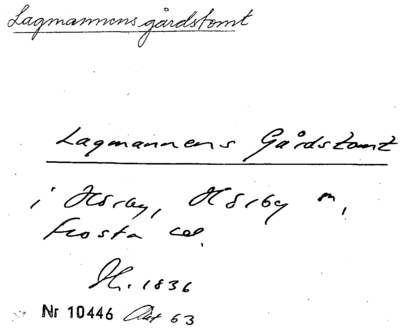 Lagmannens gårdstomt
Lagmannens Gårdstomt
i Hörby, Hörby sn,
Frosta hd.
Sk. 1836
Nr 10446 Akt 63